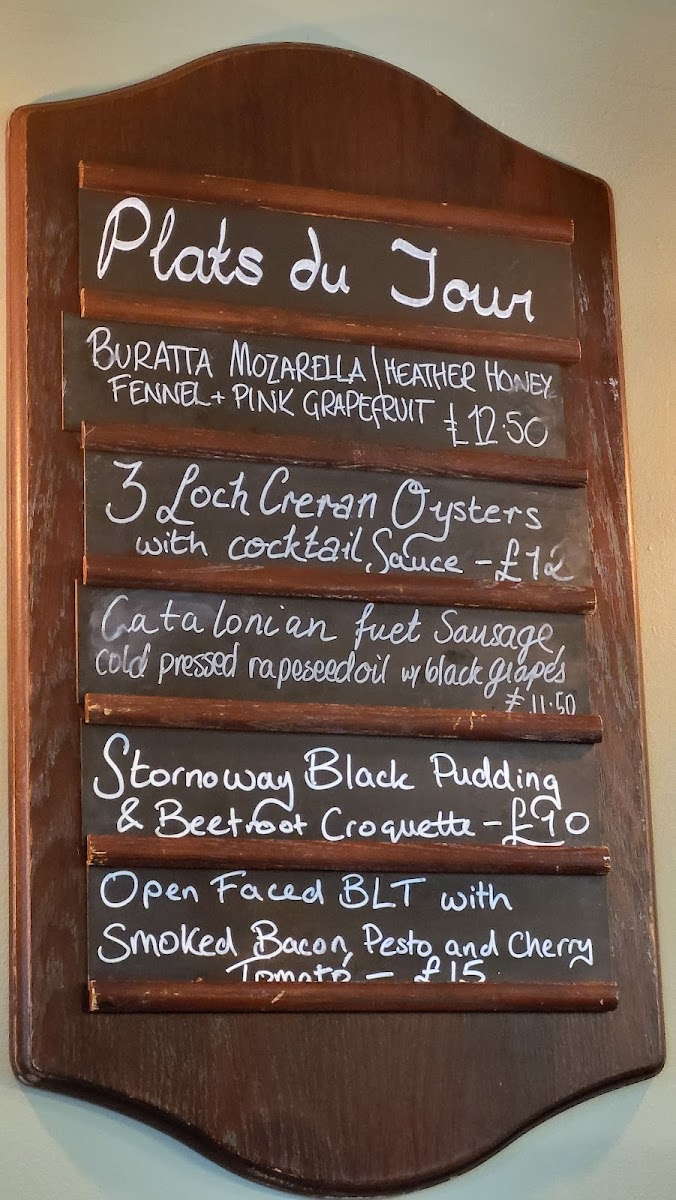 Plats du Jour
BURATTA MOZARELLA | HEATHER HONEY
FENNEL + PINK GRAPEFRUIT £12.50
3 Loch Creran Oysters
with cocktail Sauce - £12
Catalonian fuet Sausage,
cold pressed rapeseed oil w/ black grapes
£11.50
Stornoway Black Pudding
& Beetroot Croquette - £10
Open Faced BLT with
Smoked Bacon, Pesto and Cherry
Tomato - £15